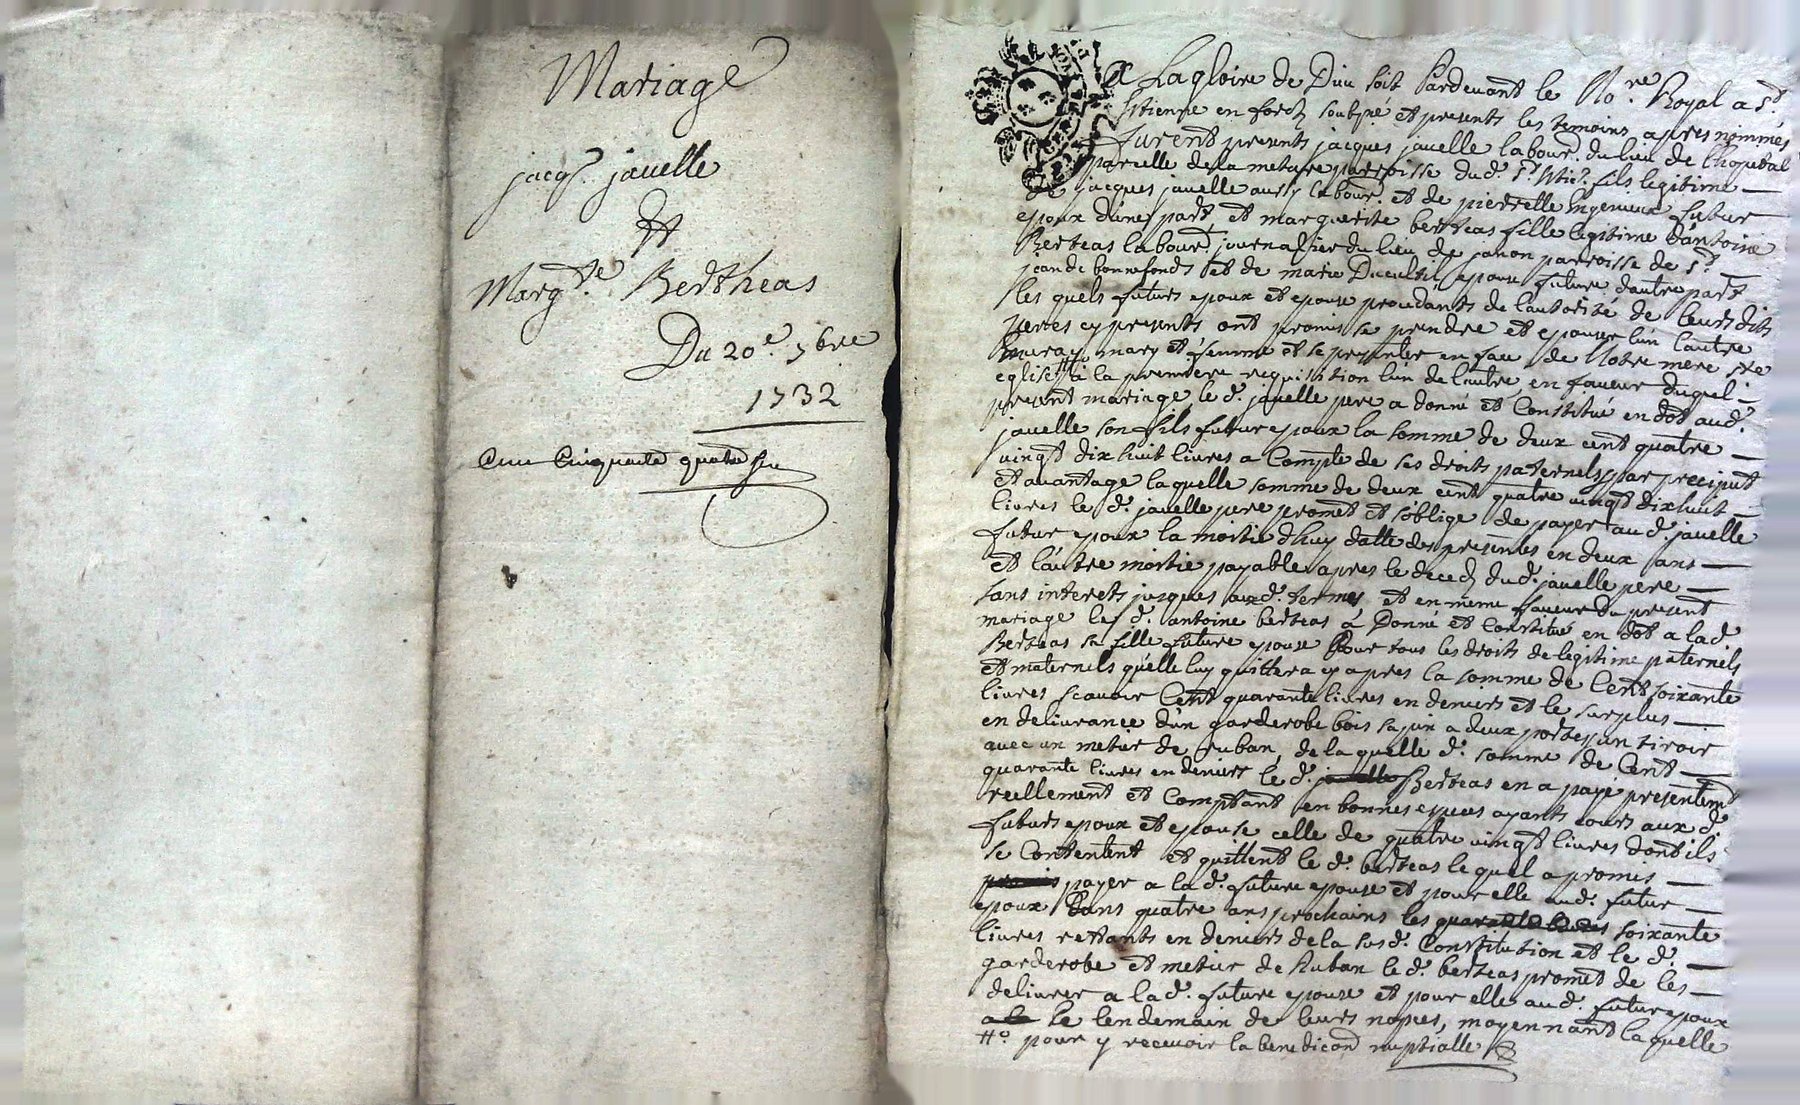 Mariage
jacq. javelle
Et
Marg.te Bertheas
Du 20e. 7bre
1732
Cinquante quatre
A La gloire de Dieu soit Pardevant le No.re Royal a St
Etienne en forez soubsné et presents les temoins apres nommés
furent presents jacques javelle labour. du lieu de lhopital
parcelle de la metare parroisse dud. St. Etie. fils legitime
jacques javelle aussy labour. et de pierrette Ingeneux futur
epoux dune part et marguerite bertheas fille legitime dantoine
Berteas labour. journalier du lieu de janon parroisse de St.
jean de bonnefonds et de marie epouse future dautre part
lesquels futurs epoux et epouse procedants de lautorité de leurs dits
peres cy presents ont promis se prendre et epouser lun lautre
mary et femme et se presenter en face de Notre mere Ste
eglise ## à la premiere requisition lun de lautre en faveur duquel
present mariage le d. javelle pere a donné et Constitué en dot aud.
javelle son fils futur epoux la somme de deux cent quatre
vingt dix huit livres a Compte de ses droits paternels par preciput
et avantage laquelle somme de deux cent quatre vingt dixhuit
livres le d. javelle pere promet et soblige de payer au d. javelle
futur epoux la moitie dhuy datte des presentes en deux ans
et lautre moitie payable apres le deced dud. javelle pere
sans interets jusques auxd. termes et en meme faveur du present
mariage le d. antoine berteas a Donné et Constitué en dot a lad.
Berteas sa fille future epouse Pour tous les droits de legitime paternels
et maternels quelle luy quittera cy apres la somme de Cent soixante
livres scavoir Cent quarante livres en deniers et le surplus
en delivrance dun garderobe bois sapin a deux portes un tiroir
avec un metier de ruban, de la quelle d. somme de Cent
quarante livres en deniers le d. javelle Berteas en a payé presentemt
reellement et Comptant en bonnes especes ayants cours aux d.
futurs epoux et epouse celle de quatre vingt livres dont ils
se Contentent et quittent le d. berteas lequel a promis
promis payer a la d. future epouse et pour elle aud. futur
epoux Dans quatre ans prochains les quarante livres soixante
livres restants en deniers de la susd. Constitution et le d.
garderobe et metier de Ruban le d. berteas promet de les
delivrer a la d. future epouse et pour elle aud. futur epoux
le lendemain de leurs nopces, moyennant laquelle
## pour y recevoir la benediçond nuptialle